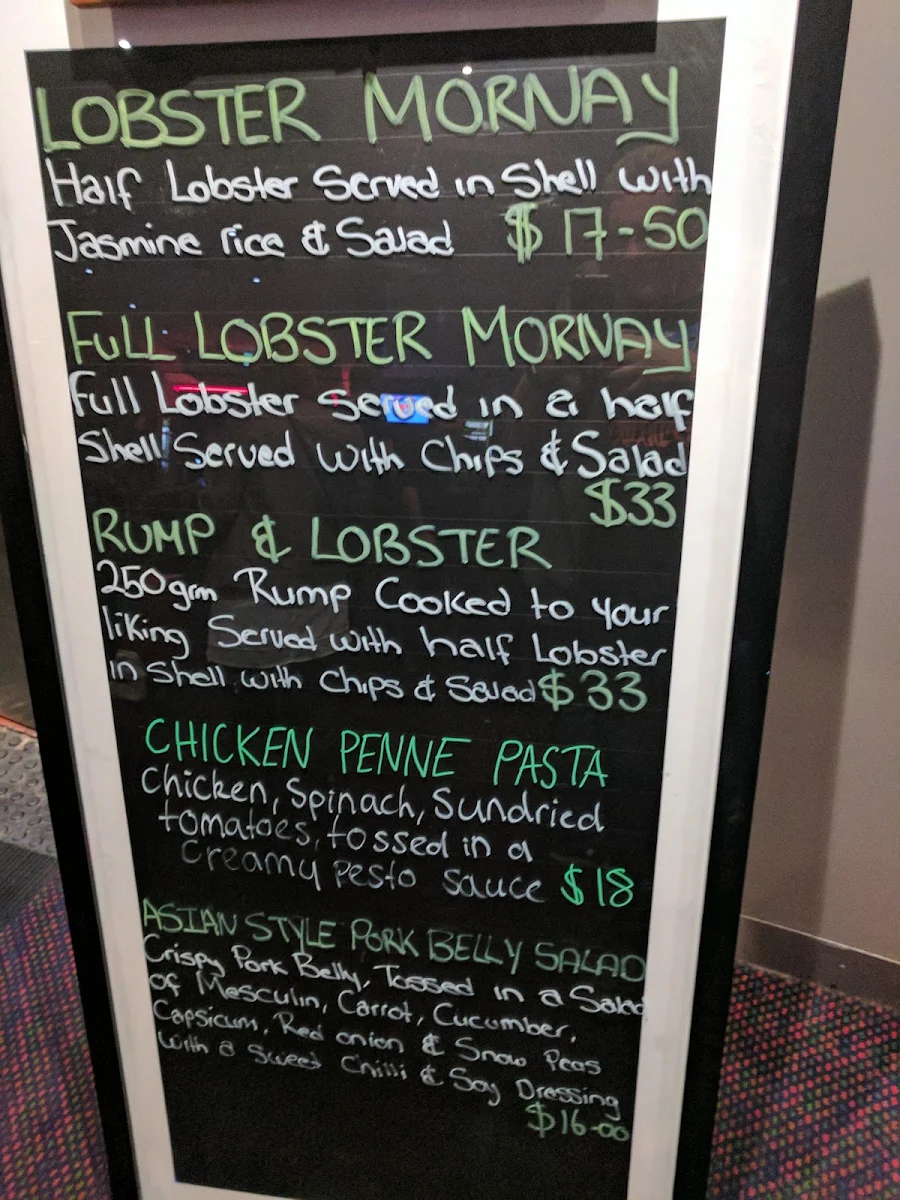 LOBSTER MORNAY
Half Lobster Served in Shell with
Jasmine rice & Salad $17-50
FULL LOBSTER MORNAY
Full Lobster served in a half
Shell Served with Chips & Salad
$33
RUMP & LOBSTER
250grm Rump Cooked to your
liking Served with half Lobster
in Shell with Chips & Salad $33
CHICKEN PENNE PASTA
Chicken, Spinach, Sundried
tomatoes, tossed in a
Creamy pesto sauce $18
ASIAN STYLE PORK BELLY SALAD
Crispy Pork Belly, Tossed in a Salad
of Mesculin, Carrot, Cucumber,
Capsicum, Red onion & Snow Peas
with a Sweet Chilli & Soy Dressing
$16-00